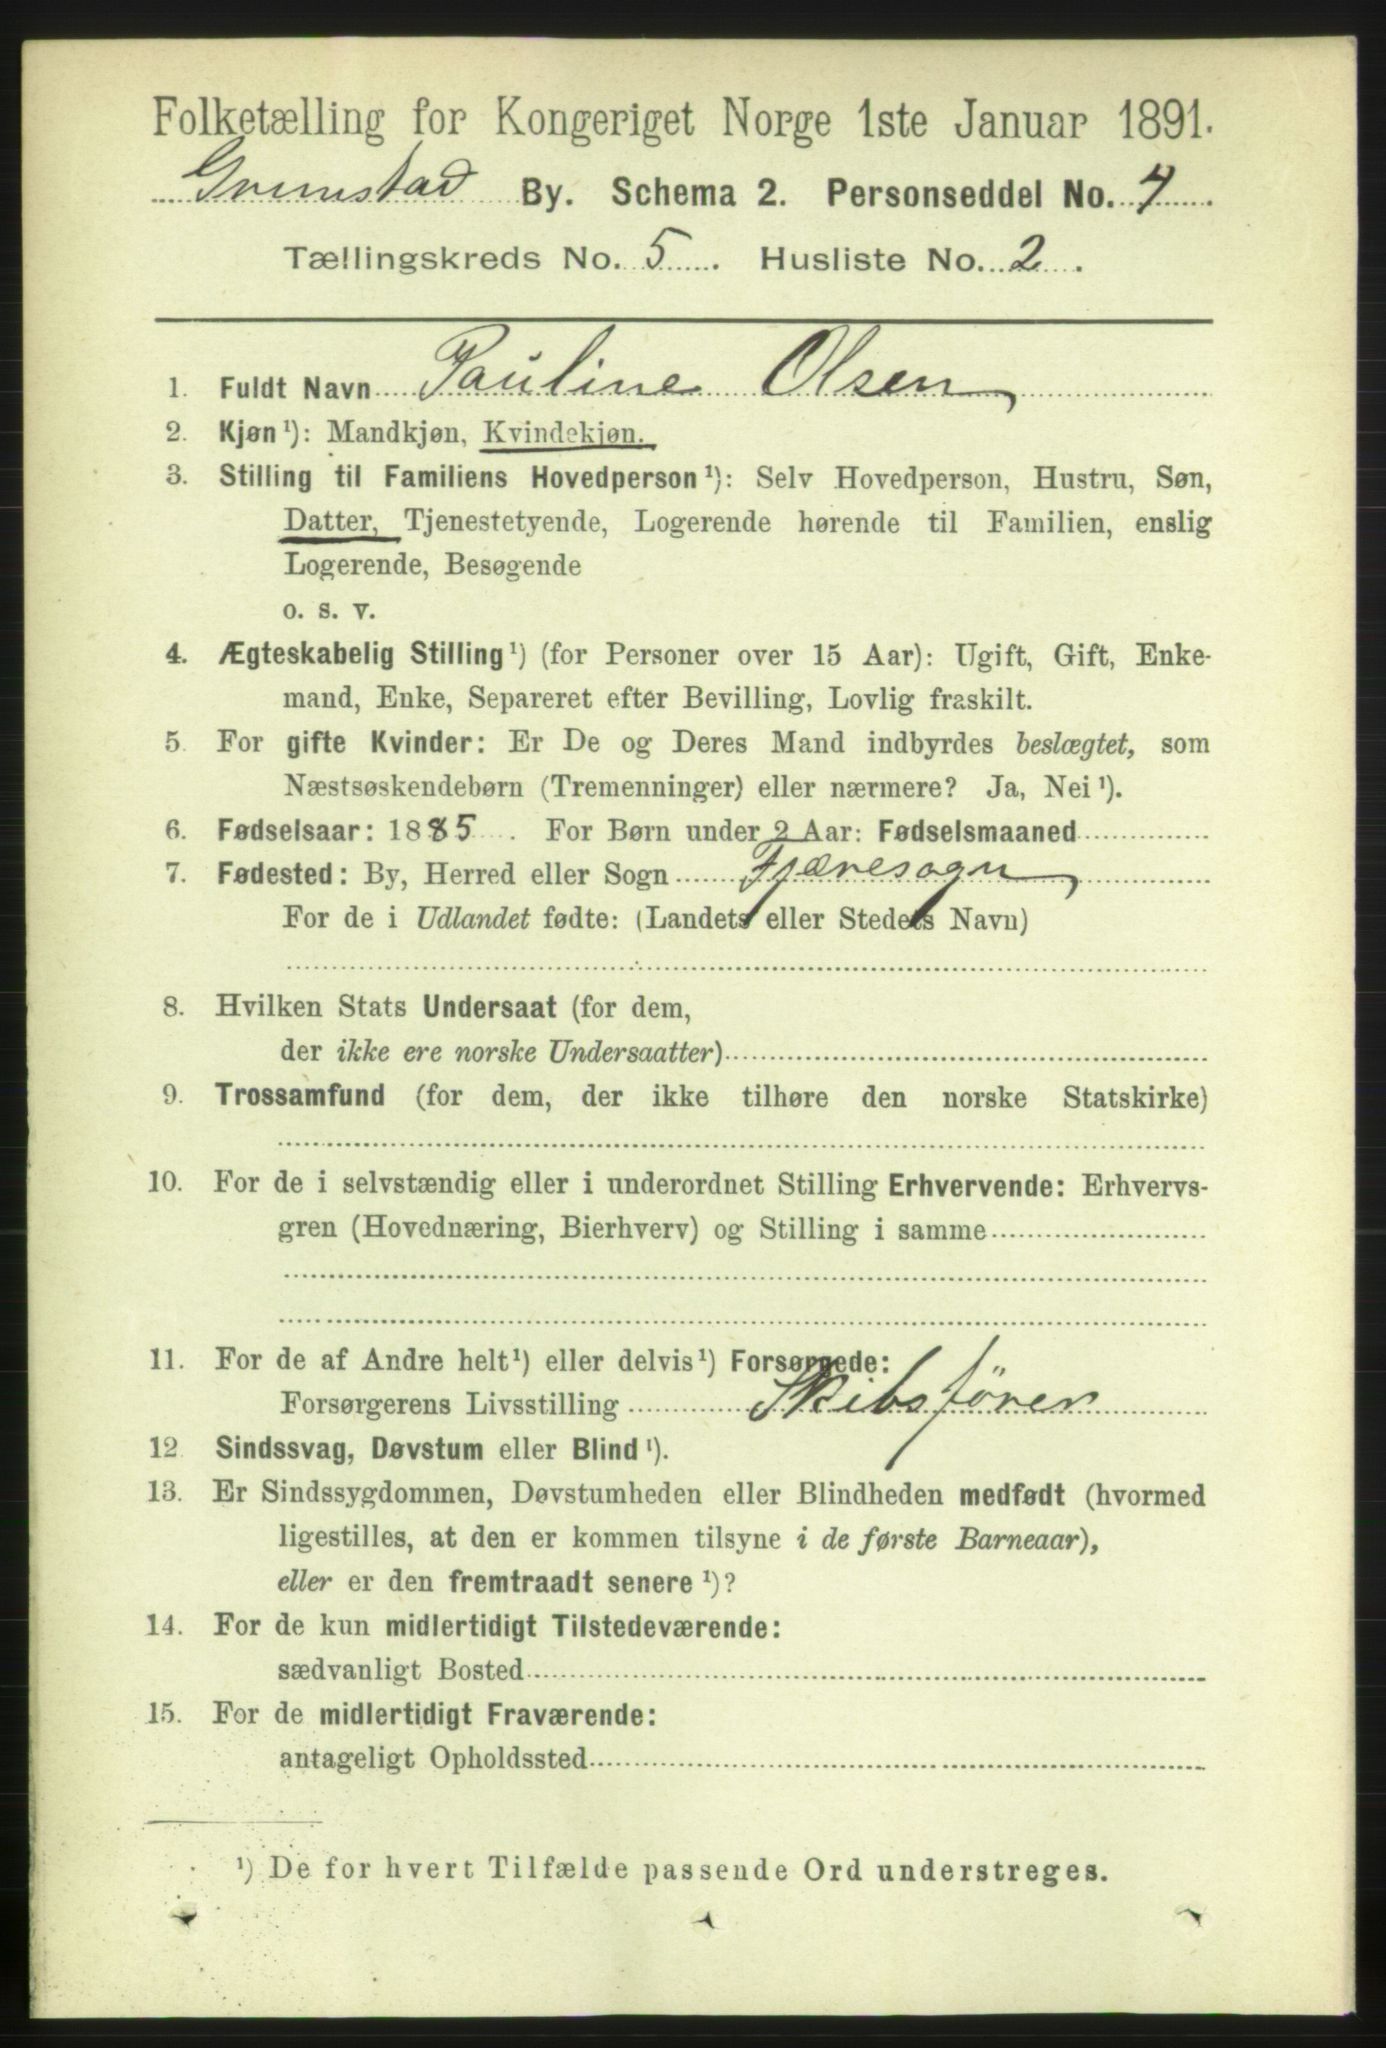 Folketælling for Kongeriget Norge 1ste Januar 1891.
Grimstad By. Schema 2. Personseddel No. 7
Tællingskreds No. 5. Husliste No. 2.
1. Fuldt Navn Pauline Olsen
2. Kjøn ¹): Mandkjøn, Kvindekjøn.
3. Stilling til Familiens Hovedperson ¹): Selv Hovedperson, Hustru, Søn,
Datter, Tjenestetyende, Logerende hørende til Familien, enslig
Logerende, Besøgende
o. s. v.
4. Ægteskabelig Stilling ¹) (for Personer over 15 Aar): Ugift, Gift, Enke-
mand, Enke, Separeret efter Bevilling, Lovlig fraskilt.
5. For gifte Kvinder: Er De og Deres Mand indbyrdes beslægtet, som
Næstsøskendebørn (Tremenninger) eller nærmere? Ja, Nei ¹).
6. Fødselsaar: 1885. For Børn under 2 Aar: Fødselsmaaned
7. Fødested: By, Herred eller Sogn Fjæresogn
For de i Udlandet fødte: (Landets eller Stedets Navn)
8. Hvilken Stats Undersaat (for dem,
der ikke ere norske Undersaatter)
9. Trossamfund (for dem, der ikke tilhøre den norske Statskirke)
10. For de i selvstændig eller i underordnet Stilling Erhvervende: Erhvervs-
gren (Hovednæring, Bierhverv) og Stilling i samme
11. For de af Andre helt ¹) eller delvis ¹) Forsørgede:
Forsørgerens Livsstilling Skibsfører
12 Sindssvag, Døvstum eller Blind ¹).
13. Er Sindssygdommen, Døvstumheden eller Blindheden medfødt (hvormed
ligestilles, at den er kommen tilsyne i de første Barneaar),
eller er den fremtraadt senere ¹)?
14. For de kun midlertidigt Tilstedeværende:
sædvanligt Bosted
15. For de midlertidigt Fraværende:
antageligt Opholdssted
¹) De for hvert Tilfælde passende Ord understreges.